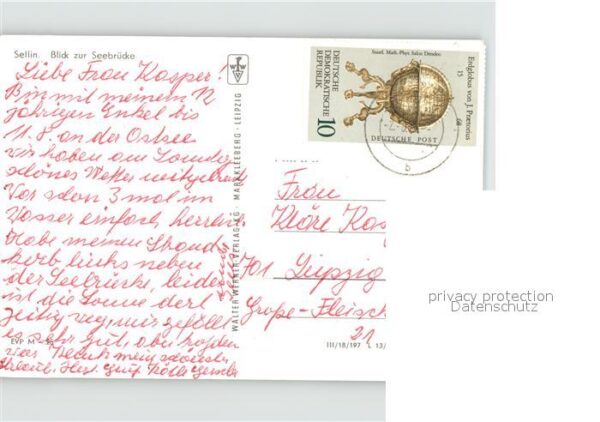 Sellin. Blick zur Seebrücke
Liebe Frau Kasper!
Bin mit meinem 12
jährigen Enkel bis
11.8. an der Ostsee
wir haben am Sonntag
schönes Wetter mitgebracht
War schon 3 mal im
Wasser einfach herrlich
Habe meinen Strand-
korb links neben
der Seebrücke, leider
ist die Sonne dort
zeitig weg, mir gefällt
es sehr gut, aber hoffen
was
Herzl. Gruß
EVP M
WALTER WERNER-VERLAG-KG · MARKKLEEBERG - LEIPZIG
Staatl. Math.-Phys. Salon Dresden
Erdglobus von J. Praetorius
15
68
DEUTSCHE
DEMOKRATISCHE
REPUBLIK
10
DEUTSCHE POST
b
Frau
Kläre Kas
701 Leipzig
Große-Fleisch
21
III/18/197 L 13/
privacy protection
Datenschutz